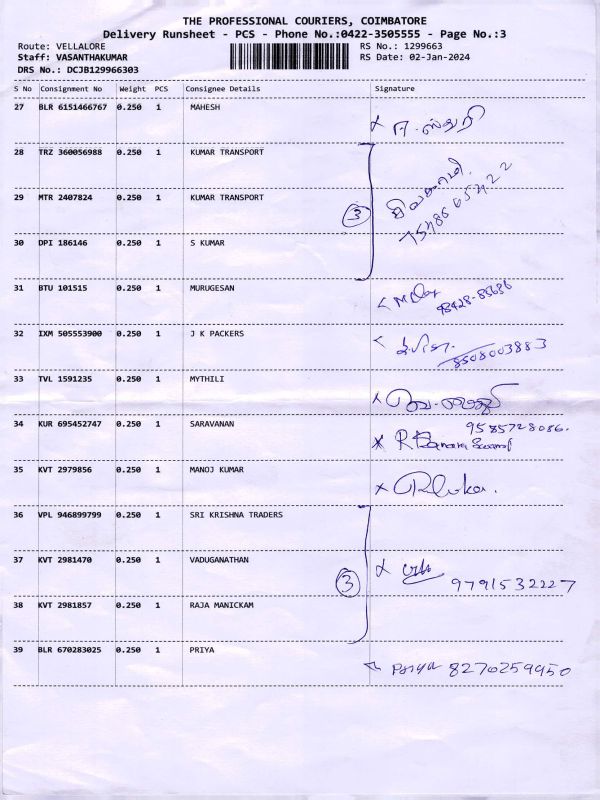 THE PROFESSIONAL COURIERS, COIMBATORE
Delivery Runsheet - PCS - Phone No.:0422-3505555 - Page No.:3
Route: VELLALORE RS No.: 1299663
Staff: VASANTHAKUMAR RS Date: 02-Jan-2024
DRS No.: DCJB129966303
S No Consignment No Weight PCS Consignee Details Signature
27 BLR 6151466767 0.250 1 MAHESH
28 TRZ 360056988 0.250 1 KUMAR TRANSPORT
29 MTR 2407824 0.250 1 KUMAR TRANSPORT 3
30 DPI 186146 0.250 1 S KUMAR
31 BTU 101515 0.250 1 MURUGESAN
32 IXM 505553900 0.250 1 J K PACKERS 8508003883
33 TVL 1591235 0.250 1 MYTHILI
34 KUR 695452747 0.250 1 SARAVANAN 9585728086.
35 KVT 2979856 0.250 1 MANOJ KUMAR
36 VPL 946899799 0.250 1 SRI KRISHNA TRADERS
37 KVT 2981470 0.250 1 VADUGANATHAN 3 9791532227
38 KVT 2981857 0.250 1 RAJA MANICKAM
39 BLR 670283025 0.250 1 PRIYA Priya 8270259950